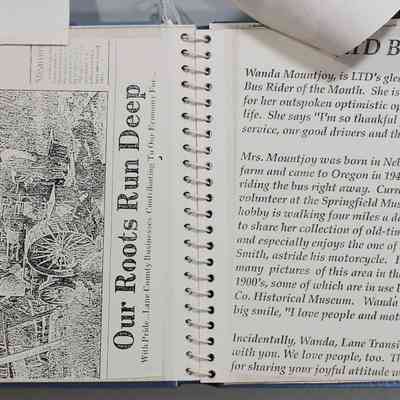 Our Roots Run Deep
With Pride...Lane County Businesses Contributing To Our Economy For...
Wanda Mountjoy, is LTD's
Bus Rider of the Month. She is
for her outspoken optimistic
life. She says "I'm so thankful
service, our good drivers and
Mrs. Mountjoy was born in
farm and came to Oregon in
riding the bus right away.
volunteer at the Springfield
hobby is walking four miles a
to share her collection of old-
and especially enjoys the one of
Smith, astride his motorcycle.
many pictures of this area in
1900's, some of which are in use
Co. Historical Museum. Wanda
big smile, "I love people and
Incidentally, Wanda, Lane
with you. We love people, too.
for sharing your joyful attitude